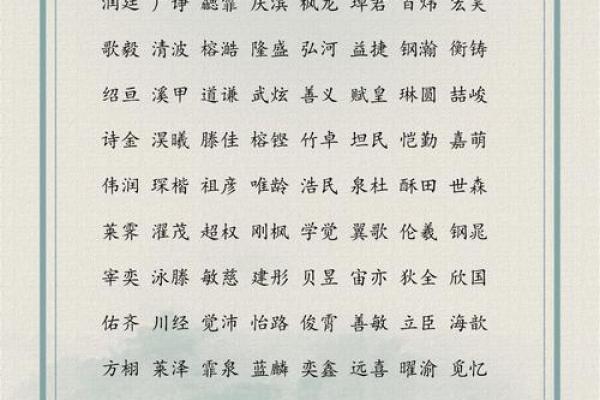 润廷 广铮 霏 庆滨 枫龙 君 百炜 宏
歌毅 清波 榕澔 隆盛 弘河 益捷 钢瀚 衡铸
绍亘 溪甲 道谦 武炫 善义 赋皇 琳圆 喆峻
诗金 淏曦 滕佳 榕铿 竹卓 坦民 恺勤 嘉萌
伟润 琛楷 祖彦 唯龄 浩民 泉杜 酥田 世森
莱霁 濯茂 超权 刚枫 学觉 翼歌 伦羲 钢晁
宰奕 泳滕 敏慈 建彤 贝昱 宙亦 狄全 欣国
佑齐 川经 觉沛 怡路 俊霄 善敏 立臣 海歆
方栩 莱泽 霏泉 蓝麟 奕鑫 远喜 曜渝 觅忆